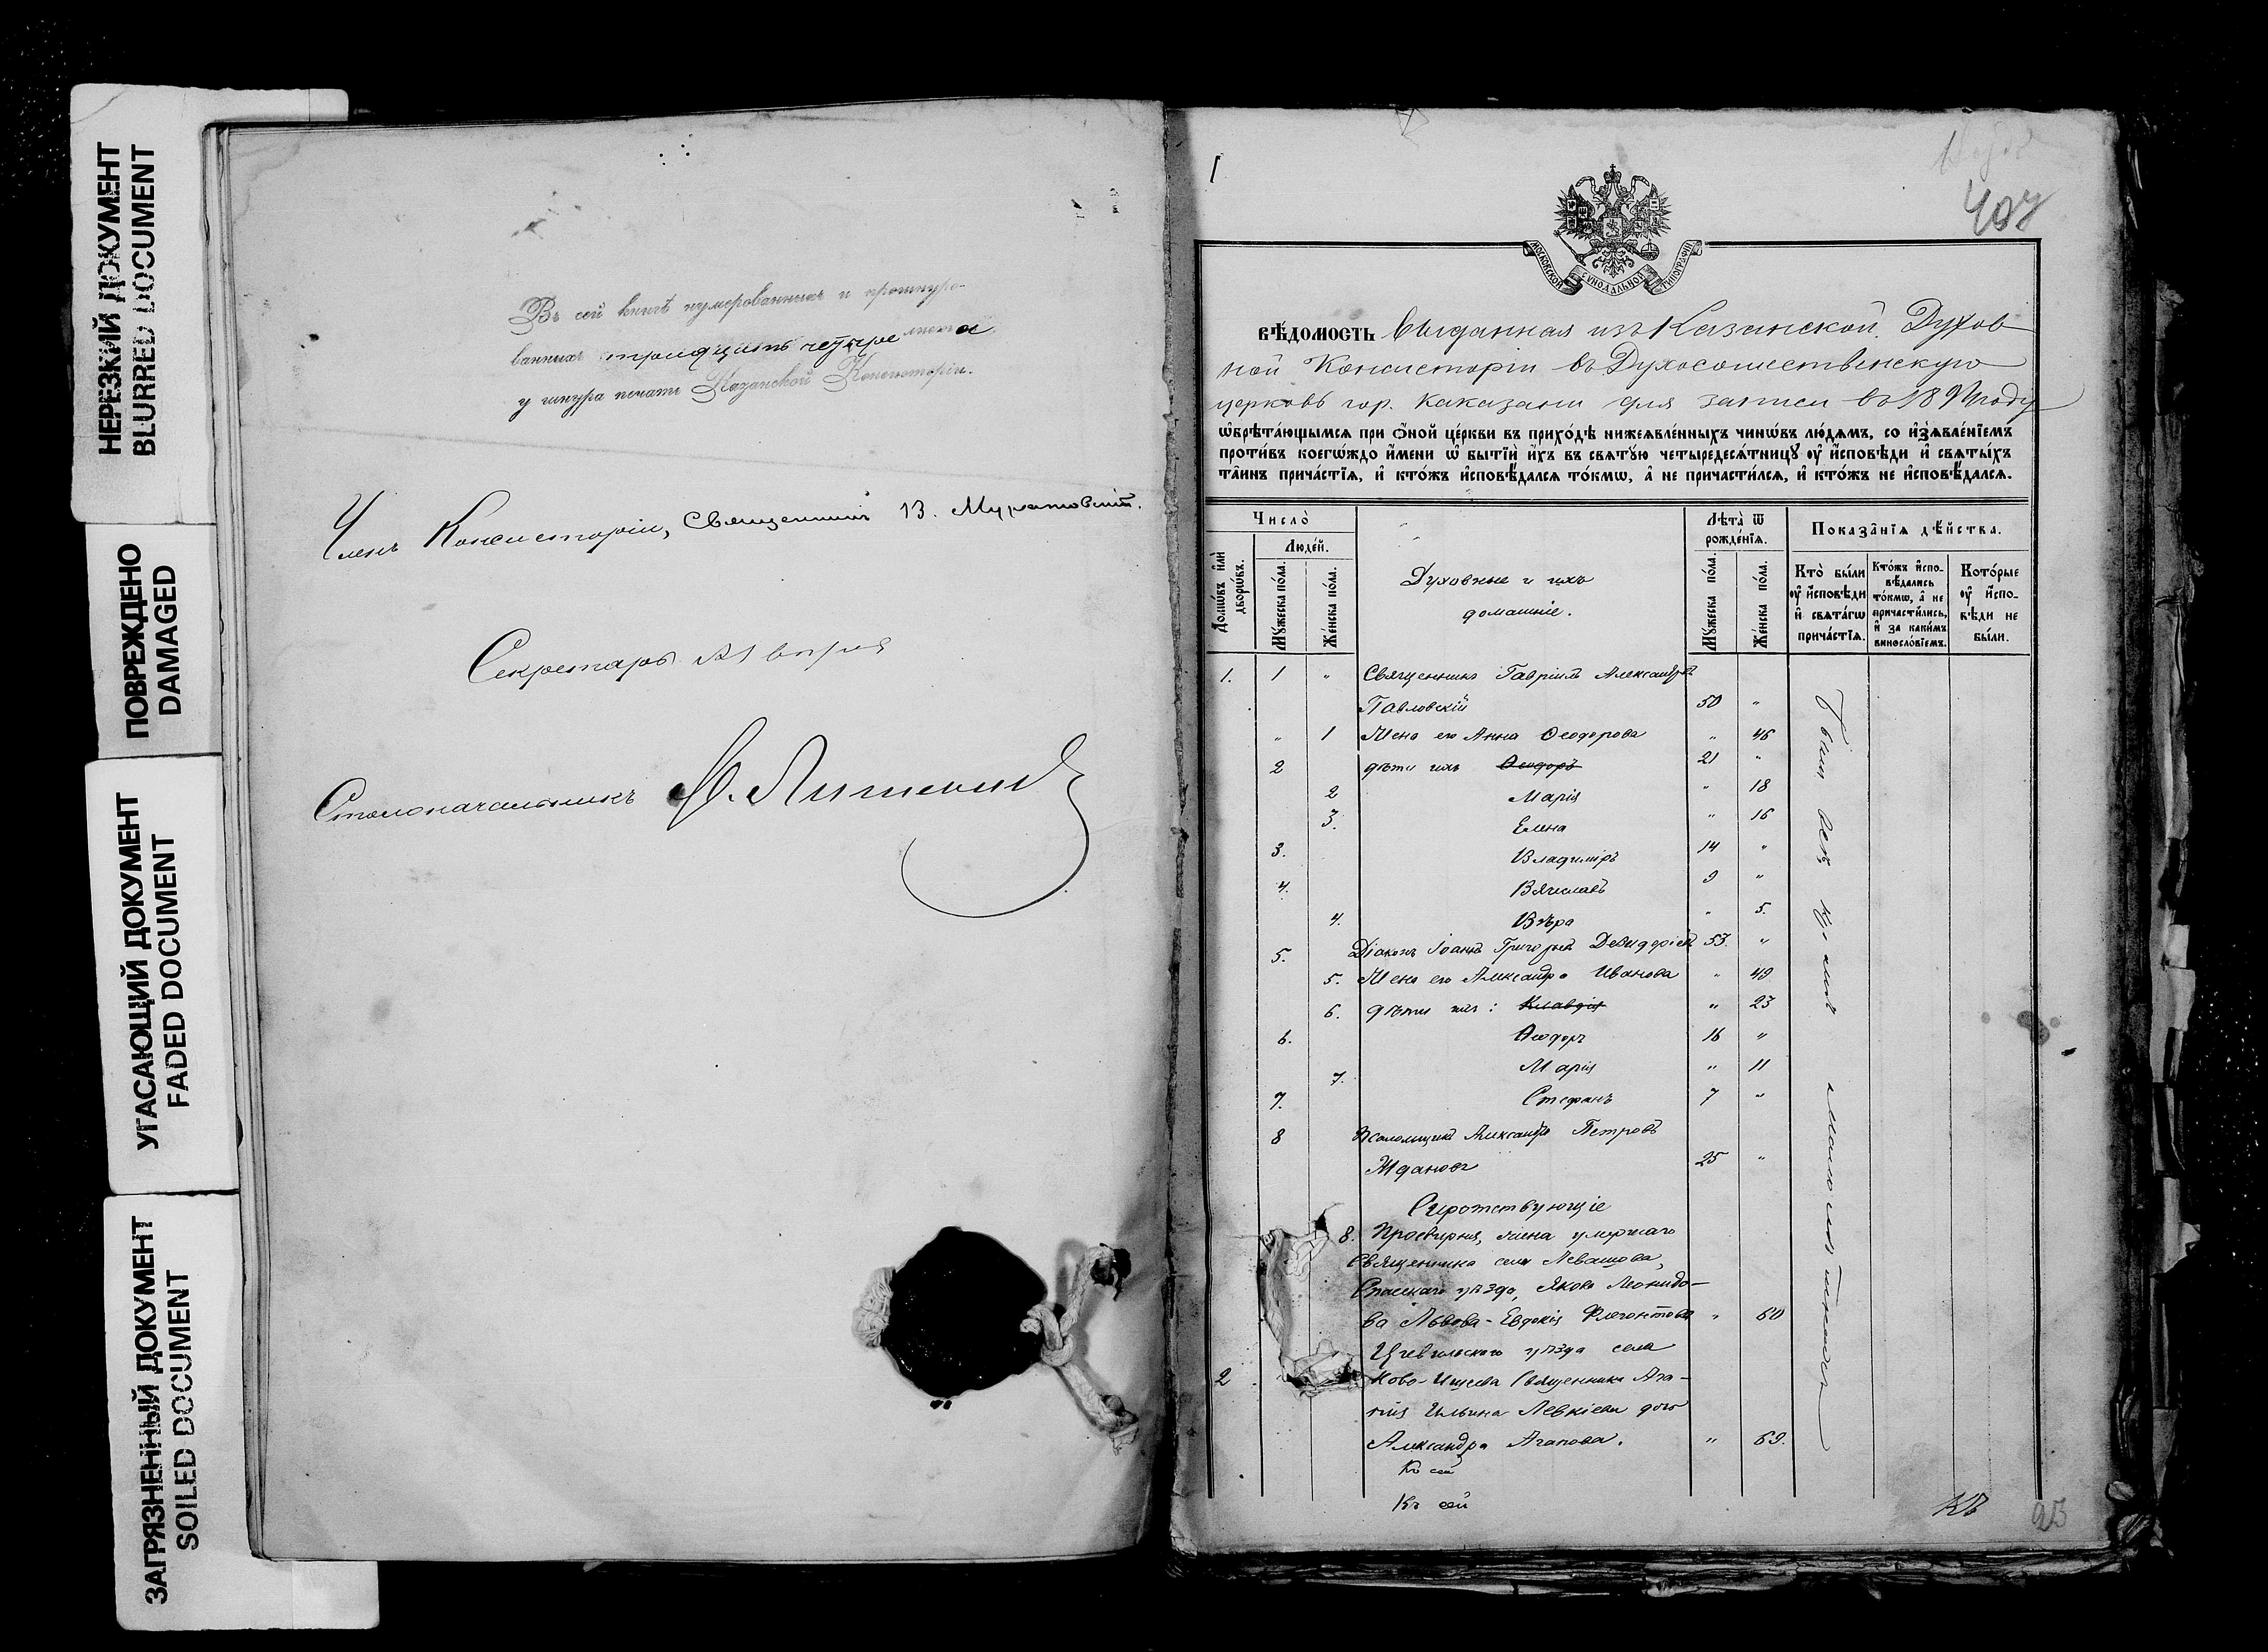 НЕРЕЗКИЙ ДОКУМЕНТ
BLURRED DOCUMENT
ПОВРЕЖДЕНО
DAMAGED
УГАСАЮЩИЙ ДОКУМЕНТ
FADED DOCUMENT
ЗАГРЯЗНЕННЫЙ ДОКУМЕНТ
SOILED DOCUMENT
Въ сей книгѣ нумерованныхъ и прошнуро-
ванныхъ тридцать четыре листа
у шнура печать Казанской Консисторіи.
Членъ Консисторіи, Священникъ
Секретарь
Столоначальникъ
1
407
МОСКОВСКОЙ СУНОДАЛЬНОЙ ТИПОГРАФІИ
вѣдомость выданная изъ Казанской Духов
ной Консисторіи въ Духосошественскую
церковь гор. Казани для записи въ годѣ
ѡбрѣта́ющымсѧ при ѻ҆́ной це́ркви въ прихо́дѣ нижеѧвле́нныхъ чинѡ́въ лю́дѧмъ, со и҆з̾ѧвле́нїемъ
проти́въ коегѡ́ждо и҆́мени ѡ҆ бытїѝ и҆́хъ въ свѧту́ю четыредесѧ́тницꙋ ᲂу҆ и҆́сповѣди и҆ свѧты́хъ
та̑инъ прича́стїѧ, и҆ кто́жъ и҆сповѣ́далсѧ то́кмѡ, а҆ не причасти́лсѧ, и҆ кто́жъ не и҆сповѣ́далсѧ.
Число̀
Домѡ́въ и҆лѝ дворѡ́въ.
Люде́й.
Мꙋ́жеска по́ла.
Же́нска по́ла.
Духовные и ихъ
домашніе.
Лѣ̑та ѿ рожде́нїѧ.
Мꙋ́жеска по́ла.
Же́нска по́ла.
Показа̑нїѧ дѣ́йства.
Кто̀ бы́ли ᲂу҆ и҆́сповѣди и҆ свѧта́гѡ прича́стїѧ.
Кто́жъ и҆спо-вѣ́дались то́кмѡ, а҆ не причасти́лись, и҆ за каки́мъ винносло́вїемъ.
Кото́рые ᲂу҆ и҆́спо-вѣди не бы́ли.
1. 1 " Священникъ Гавріилъ Александровъ
Павловскій 50 "
" 1 Жена его Анна Ѳеодорова " 46
2 дѣти ихъ Ѳеодоръ 21 "
2 Марія " 18
3. Елена " 16
3. Владиміръ 14 "
4. Вячеславъ 9 "
4. Вѣра " 5.
5. Діаконъ Іоаннъ Григорьевъ 53. "
5. Жена его Александра Иванова " 49
6. дѣти ихъ: Клавдія " 23
6. Ѳеодоръ 16 "
7. Марія " 11
7. Стефанъ 7 "
8 Псаломщикъ Александръ Петровъ
Ждановъ 25 "
Сиротствующіе
8. Просвирня, жена умершаго
Священника села Левашова,
Спасскаго уѣзда, Якова Леонидо-
ва Львова - Евдокія Флегонтова " 60
Цивильскаго уѣзда села
2 Ново- Священника Ага-
пія Ильина дочь
Александра Агапова. " 69.
Къ сей
Къ сей
Были всѣ кромѣ
КВ
23